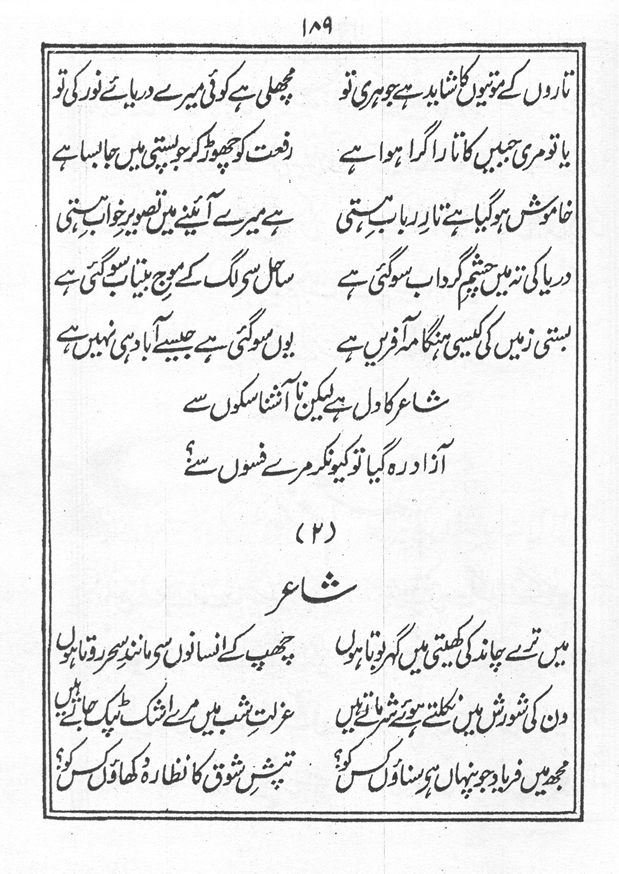 ۱۸۹
تاروں کے موتیوں کا شاید ہے جوہری تو مچھلی ہے کوئی میرے دریائے نور کی تو
یا تو مری جبیں کا تارا گرا ہوا ہے رفعت کو چھوڑ کر جو پستی میں جا بسا ہے
خاموش ہو گیا ہے تارِ ربابِ ہستی ہے میرے آئینے میں تصویرِ خوابِ ہستی
دریا کی تہ میں چشمِ گرداب سو گئی ہے ساحل سی لگ کے موجِ بیتاب سو گئی ہے
بستی زمیں کی کیسی ہنگامہ آفریں ہے یوں سو گئی ہے جیسے آباد ہی نہیں ہے
شاعر کا دل ہے لیکن ناآشنا سکوں سے
آزاد رہ گیا تو کیونکر مرے فسوں سے؟
(۲)
شاعر
میں ترے چاند کی کھیتی میں گہر بوتا ہوں چھپ کے انسانوں سی مانندِ سحر روتا ہوں
دن کی شورش میں نکلتے ہوئے شرماتے ہیں عزلتِ شب میں مرے اشک ٹپک جاتے ہیں
مجھ میں فریاد جو پنہاں ہی سناؤں کس کو؟ تپشِ شوق کا نظارہ دکھاؤں کس کو؟